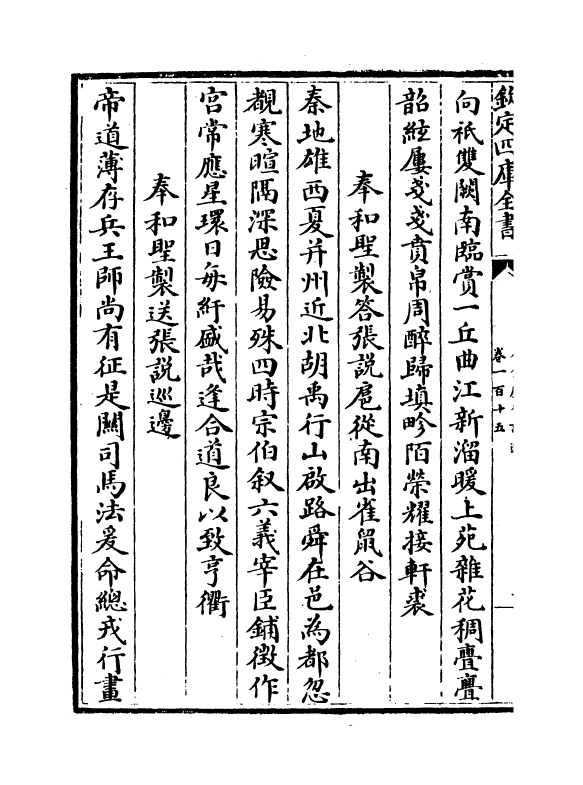 欽定四庫全書
卷一百十五
向祇雙闕南臨賞一丘曲江新溜暖上苑雜花稠亹亹
韶絃屢戔戔賁帛周醉歸填畛陌榮耀接軒裘
奉和聖製答張說扈從南出雀鼠谷
秦地雄西夏并州近北胡禹行山啟路舜在邑為都忽
覩寒暄隔深思險易殊四時宗伯叙六義宰臣鋪徵作
宮常應星環日每紆盛哉逢合道良以致亨衢
奉和聖製送張說巡邊
帝道薄存兵王師尚有征是關司馬法爰命總戎行畫